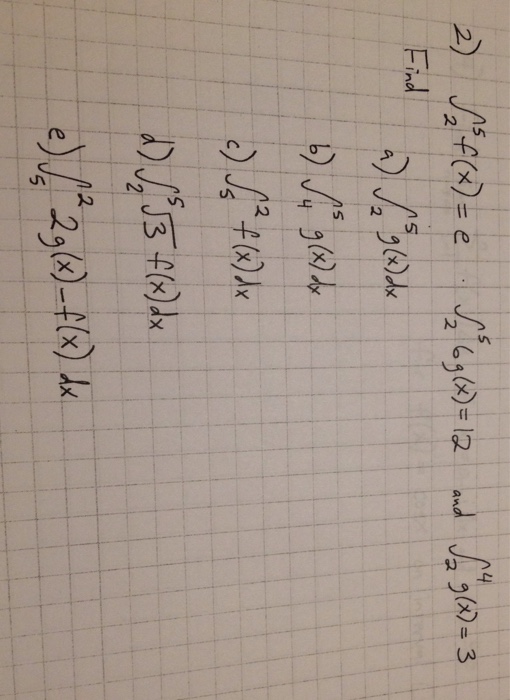 2) ∫₂⁵ f(x) = e . ∫₂⁵ 6g(x) = 12 and ∫₂⁴ g(x) = 3
Find
a) ∫₂⁵ g(x)dx
b) ∫₄⁵ g(x)dx
c) ∫₅² f(x)dx
d) ∫₂⁵ √3 f(x)dx
e) ∫₅² 2g(x)-f(x) dx